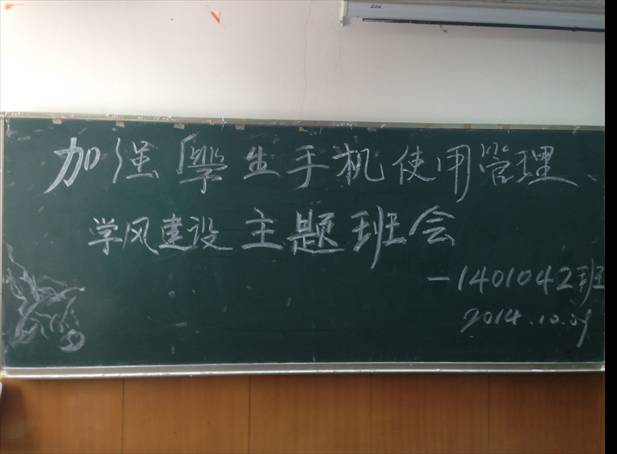 加强「學生手机使用管理、
学风建设主题班会
—1401042班
2014.10.09